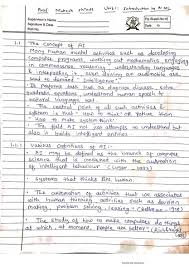 Prof. Mahesh Shinde Unit 1: Introduction to AI & ML
Supervisor's Name:
Signature & Date
1.1 The concept of AI:
Many human mental activities such as developing
computer programs, working out mathematics, engaging
in commonsense reasoning, understanding languages
& interpreting it, even driving an automobile are
said to demand "intelligence".
to diagnose disease, solve
quadratic equations, understand human speech &
natural language text.
The central goal of all such activities &
system is that is how to make the system think.
The field AI not only attempts to understand but
also it builds intelligent entities.
1.2 Various Definitions of AI:
AI may be defined as the branch of computer
science that is concerned with the automation
of intelligent behaviour. (Luger - 1993)
Systems that thinks like human.
The automation of activities that we associated
with human thinking, activities such as decision
making, problem solving, learning (Bellman - 1978)
The study of how to make computers do things
at which, at moment, people are better". (Rich &